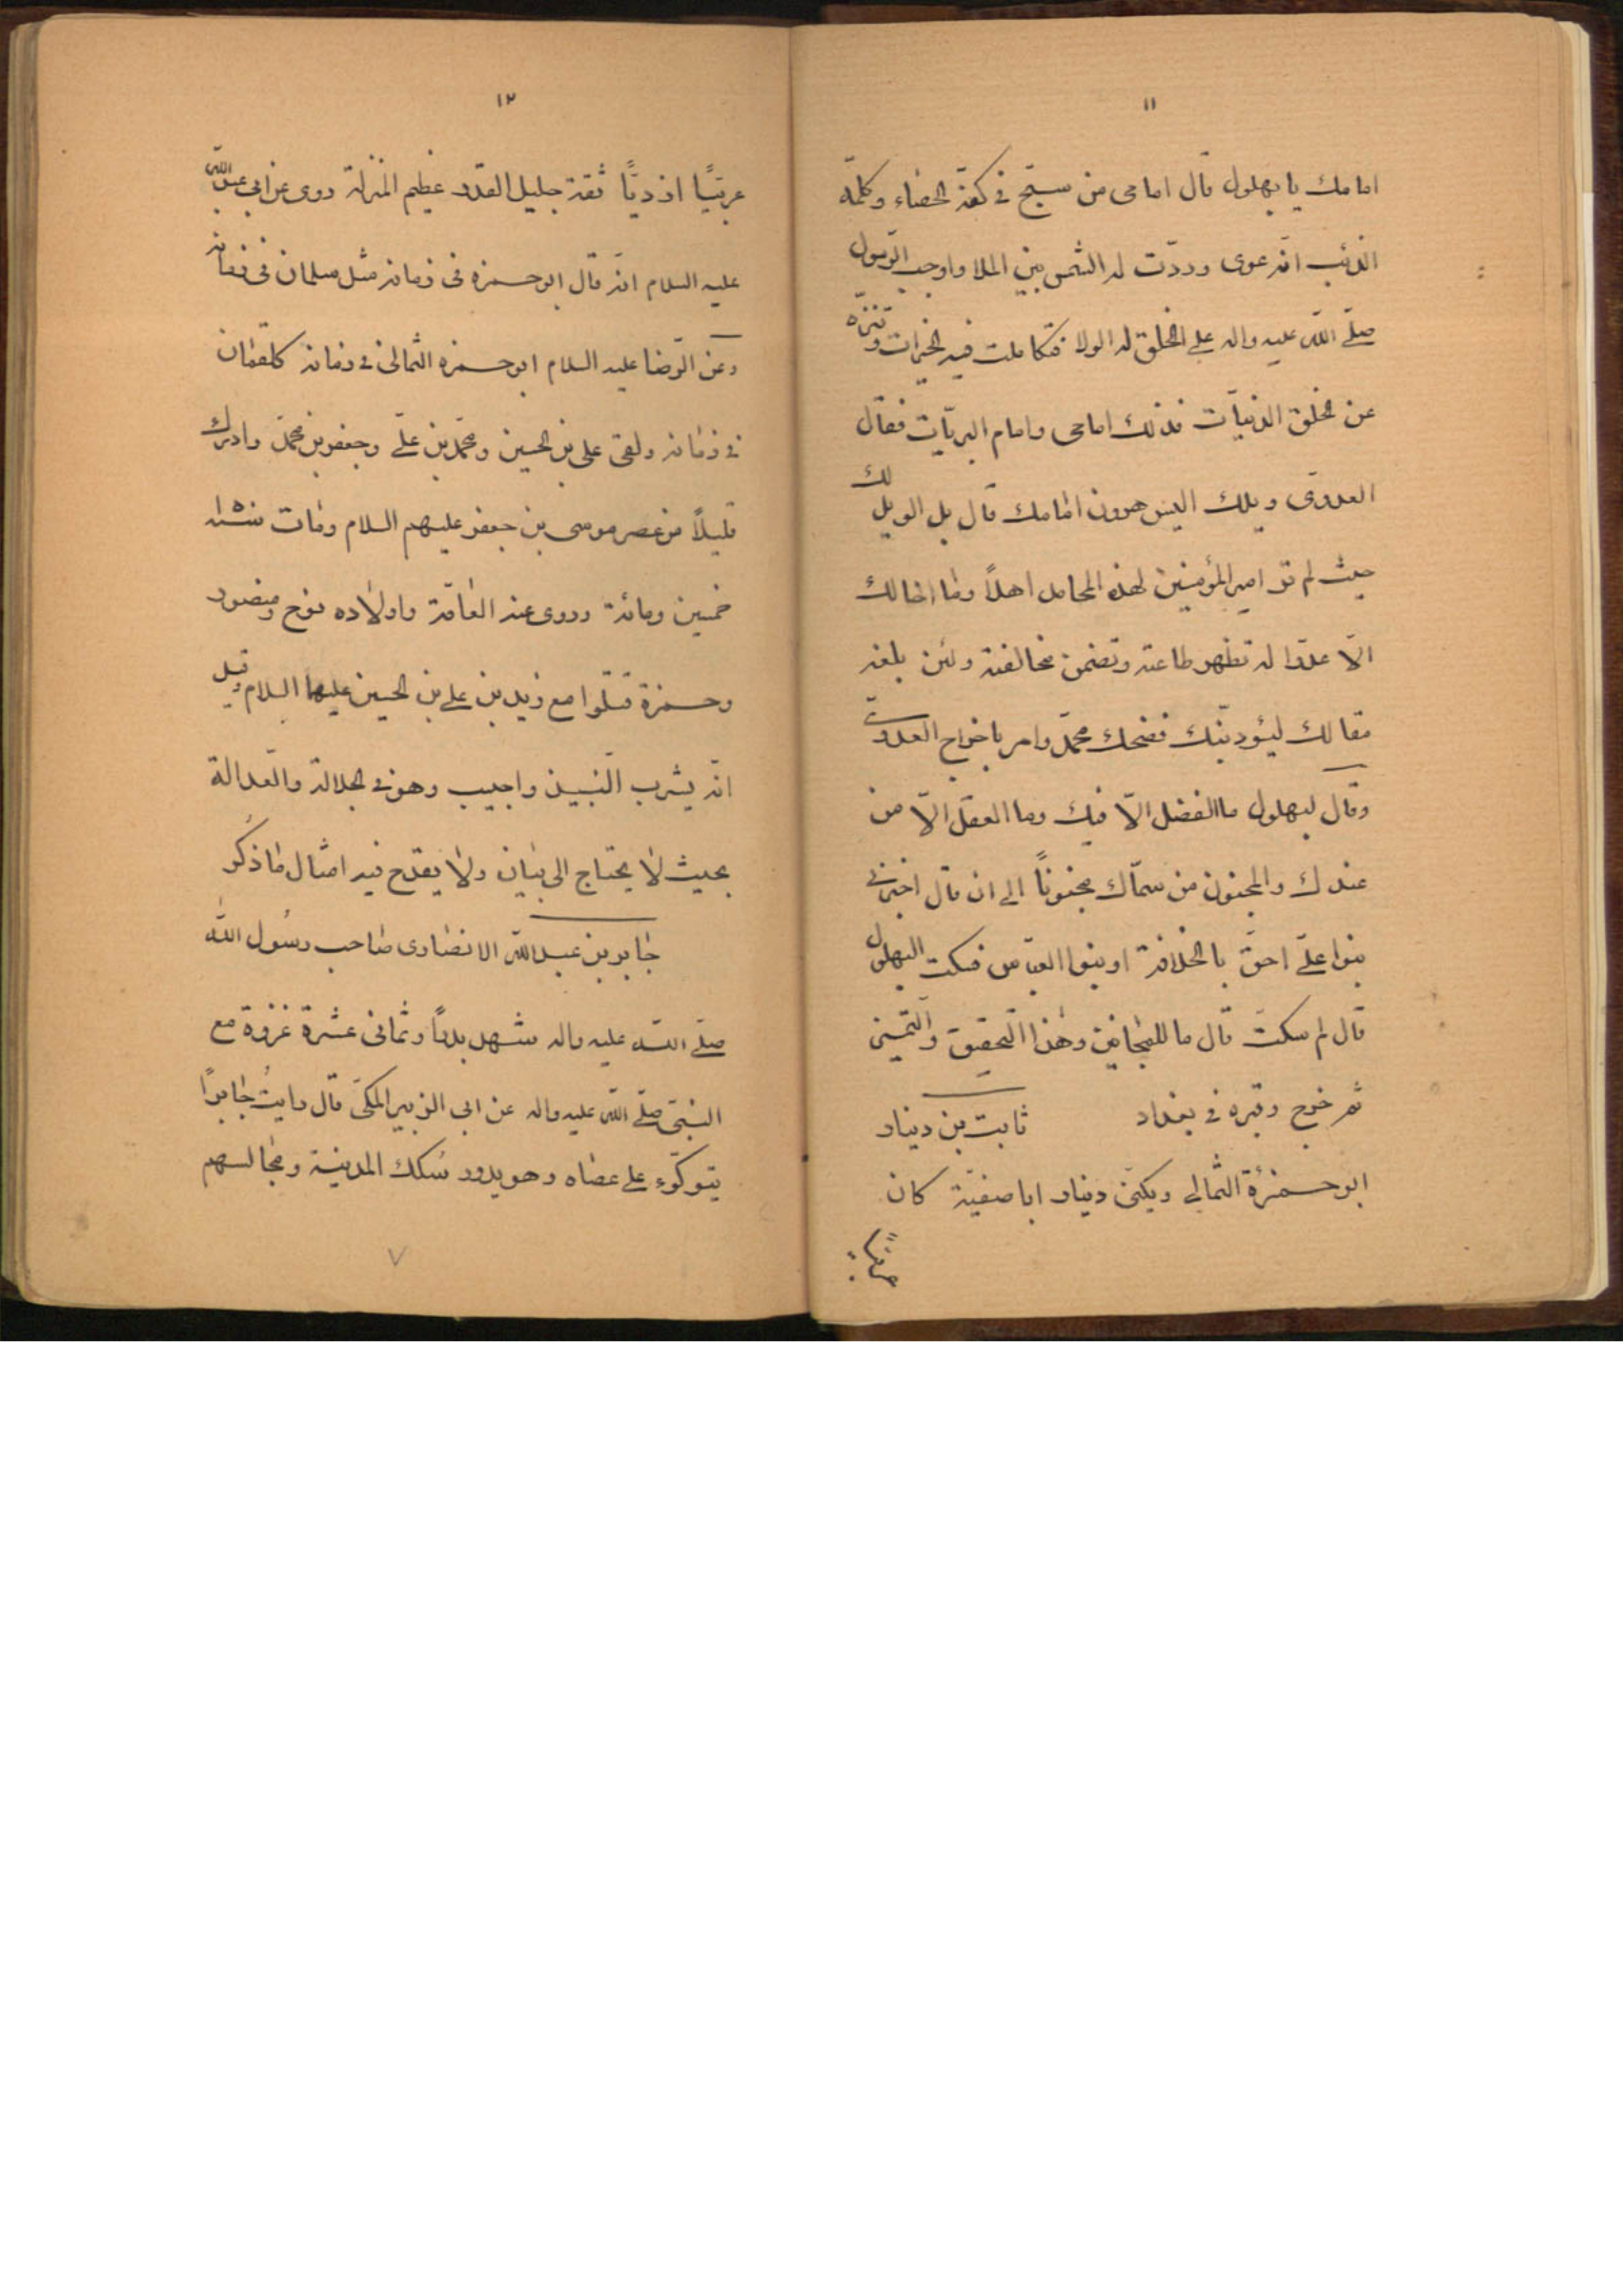 ١١
امامك يا بهلول قال امامى من سبّح فى كفّه الحصاء وكلّمه
الذئب اذ عوى وردّت له الشمس بين الملا واوجب الرّسول
صلّى اللّه عليه واله على الخلق له الولا فتكاملت فيه الخيرات وتنزّه
عن الخلق الدنيّات فذلك امامى وامام البريّات فقال
العدوى ويلك اليس هرون امامك قال بل الويل لك
حيث لم تر امير المؤمنين لهذه المحامد اهلاً وما اخالك
الّا عدوّا له تظهر طاعته وتضمن مخالفته ولئن بلغه
مقالك ليئودبنّك فضحك محمّد وامر باخراج العدوىّ
وقال لبهلول ما الفضل الّا فيك وما العقل الّا من
عندك والمجنون من سمّاك مجنوناً الى ان قال اخبرنى
بنوا علىّ احقّ بالخلافة او بنوا العبّاس فسكت البهلول
قال لم سكتّ قال ما للمجانين وهذا التّحقيق والتّميز
ثم خرج وقبره فى بغداد ثابت بن دينار
ابو حمزة الثّمالى ويكنّى دينار ابا صفيّة كان
عربيّاً
١٢
عربيّاً ازديّاً ثقة جليل القدر عظيم المنزلة روى عن ابي عبد اللّه
عليه السلام انّه قال ابو حمزه فى زمانه مثل سلمان فى زمانه
وعن الرّضا عليه السلام ابو حمزه الثمالى فى زمانه كلقمان
فى زمانه ولقى على بن الحسين ومحمّد بن علىّ وجعفر بن محمّد وادرك
قليلاً من عصر موسى بن جعفر عليهم السلام ومات سنة
خمسين ومائة وروى عنه العامّة واولاده نوح ومنصور
وحمزة قتلوا مع زيد بن على بن الحسين عليهما السلام وقيل
انّه يشرب النّبيذ واجيب وهو فى الجلالة والعدالة
بحيث لا يحتاج الى بيان ولا يقدح فيه امثال ما ذكر
جابر بن عبد اللّه الانصارى صاحب رسُول اللّه
صلّى اللّه عليه واله شهد بدراً وثمانى عشرة غزوة مع
النبىّ صلّى اللّه عليه واله عن ابى الزبير المكىّ قال رايتُ جابراً
يتوكّوء على عصاه وهو يدور سُكك المدينة ومجالسهم
٧